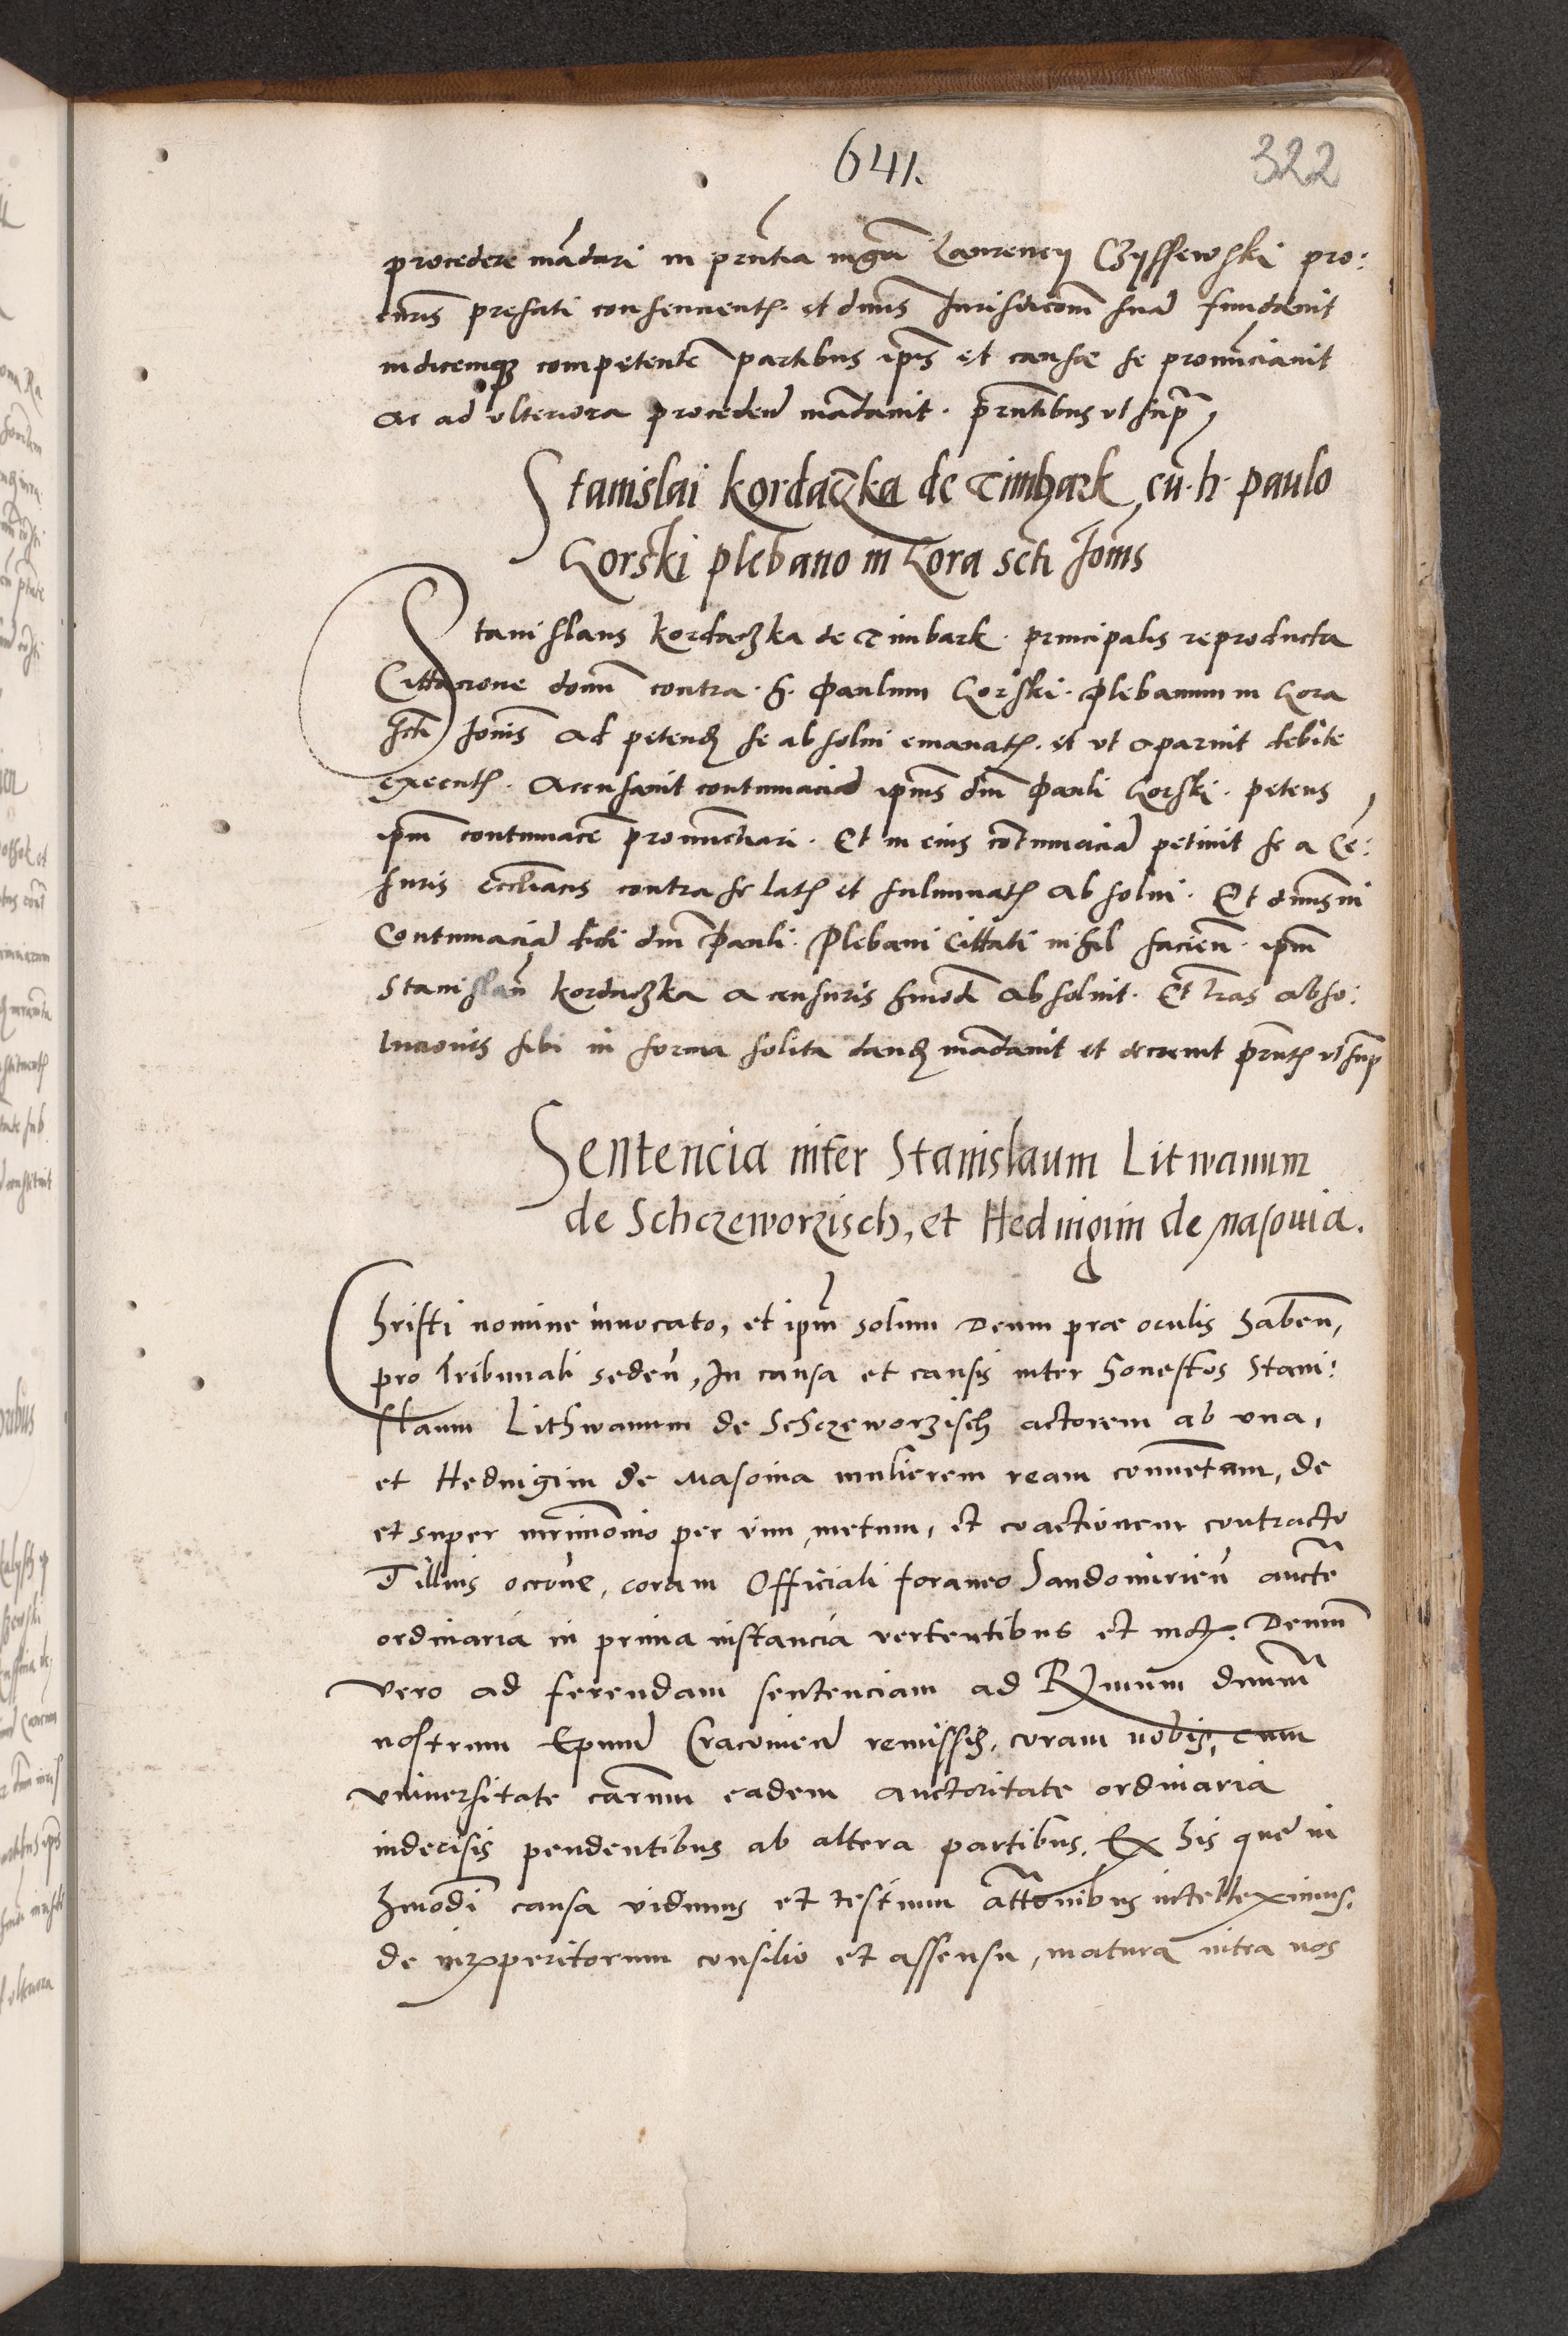 641.
322
procedere mādari in prn̄tia mgrī Laurencij Czÿssewski pro:
curīs prefati consencientꝭ. et dnūs Jurisdicōm suā fundauit
iudicemqꝫ competentē partibus ipīs et causæ se pronūciauit
ac ad vlteriora procedend̄ mādauit. prn̄tibus vt supra
Stanislai kordaczka de Timbark cū. h. paulo
Gorski plebano in Gora scti Joīns
Stanislaus kordaczka de Timbark. principalis reproducta
Cittacione domī contra. h. Paulum Gorski. Plebanum in Gora
scti Joīnis ad petendꝭ se absolui emanatꝭ. et vt aparuit debite
executꝭ. Accusauit contumaciā ipīus dnī Pauli Gorski. petens
ipm̄ contumacē pronunctiari. Et in eius cōtumaciā petiuit se a Cē:
suris eccliācis contra se latꝭ et fulminatꝭ absolui. Et dnūs in
Contumaciā dicti dnī Pauli. Plebani Cittati nihil facien̄. ipm̄
Stanislaū kordaczka a censuris hmōdi absoluit. Et lrās abso:
lucionis sibi in forma solita dandꝭ mādauit et decreuit prn̄tꝭ vt sup
Sentencia inter Stanislaum Litwanum
de Schczeworzisch, et Heduigim de Masouia.
Christi nomine inuocato, et ipm̄ solum Deum præ oculis haben̄,
pro tribunali seden̄, In causa et causis inter honestos Stani:
slaum Lithwanum de Schczeworzisch actorem ab vna,
et Heduigim de Masouia mulierem ream conuentam, de
et super mr̄imonio per vim, metum, et coactionem contracto
illius occōne, coram Officiali foraneo Sandomirien̄ auctē
ordinaria in prima instancia vertentibus et motꝭ. Demum
vero ad ferendam sentenciam ad Rmum dnum̄
nostrum Epum̄ Cracouien̄ remissis, coram nobis, cum
vniuersitate carum̄ eadem auctoritate ordinaria
indecisis pendentibus ab altera partibus. Ex his que in
hmōdi causa vidimus et testium attōnibus intelleximus,
de iurisperitorum consilio et assensu, matura intra nos